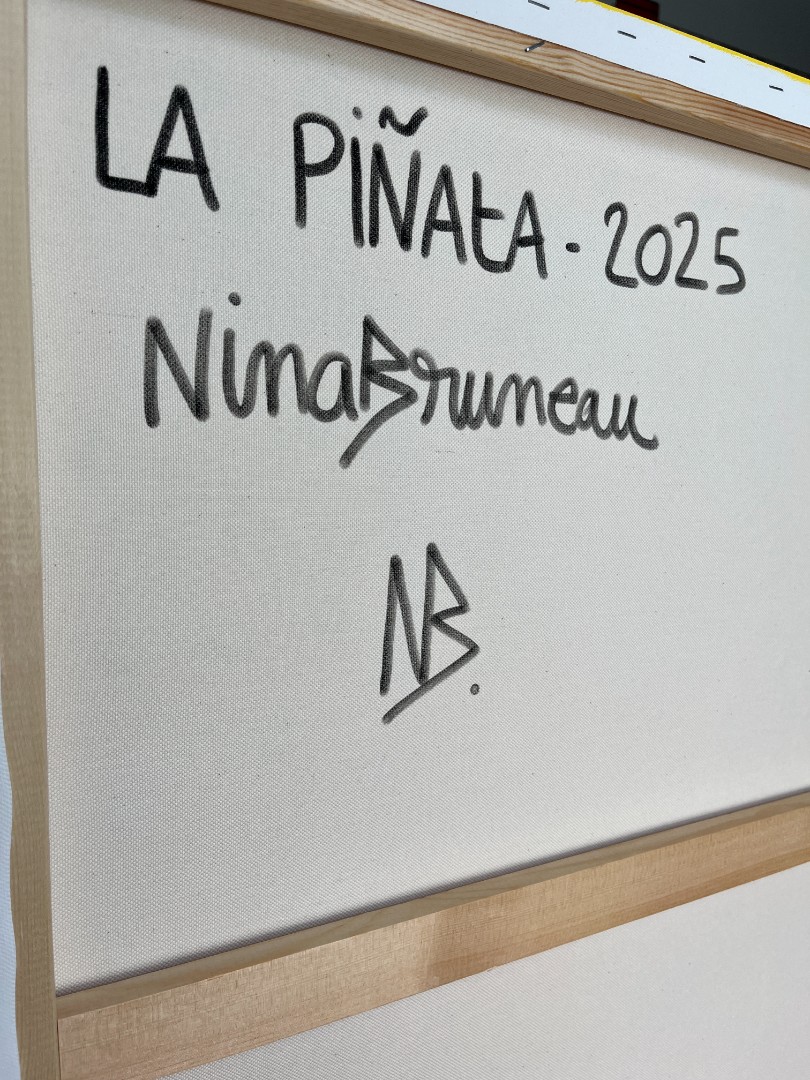 LA PIÑAtA - 2025
Nina Bruneau
NB.